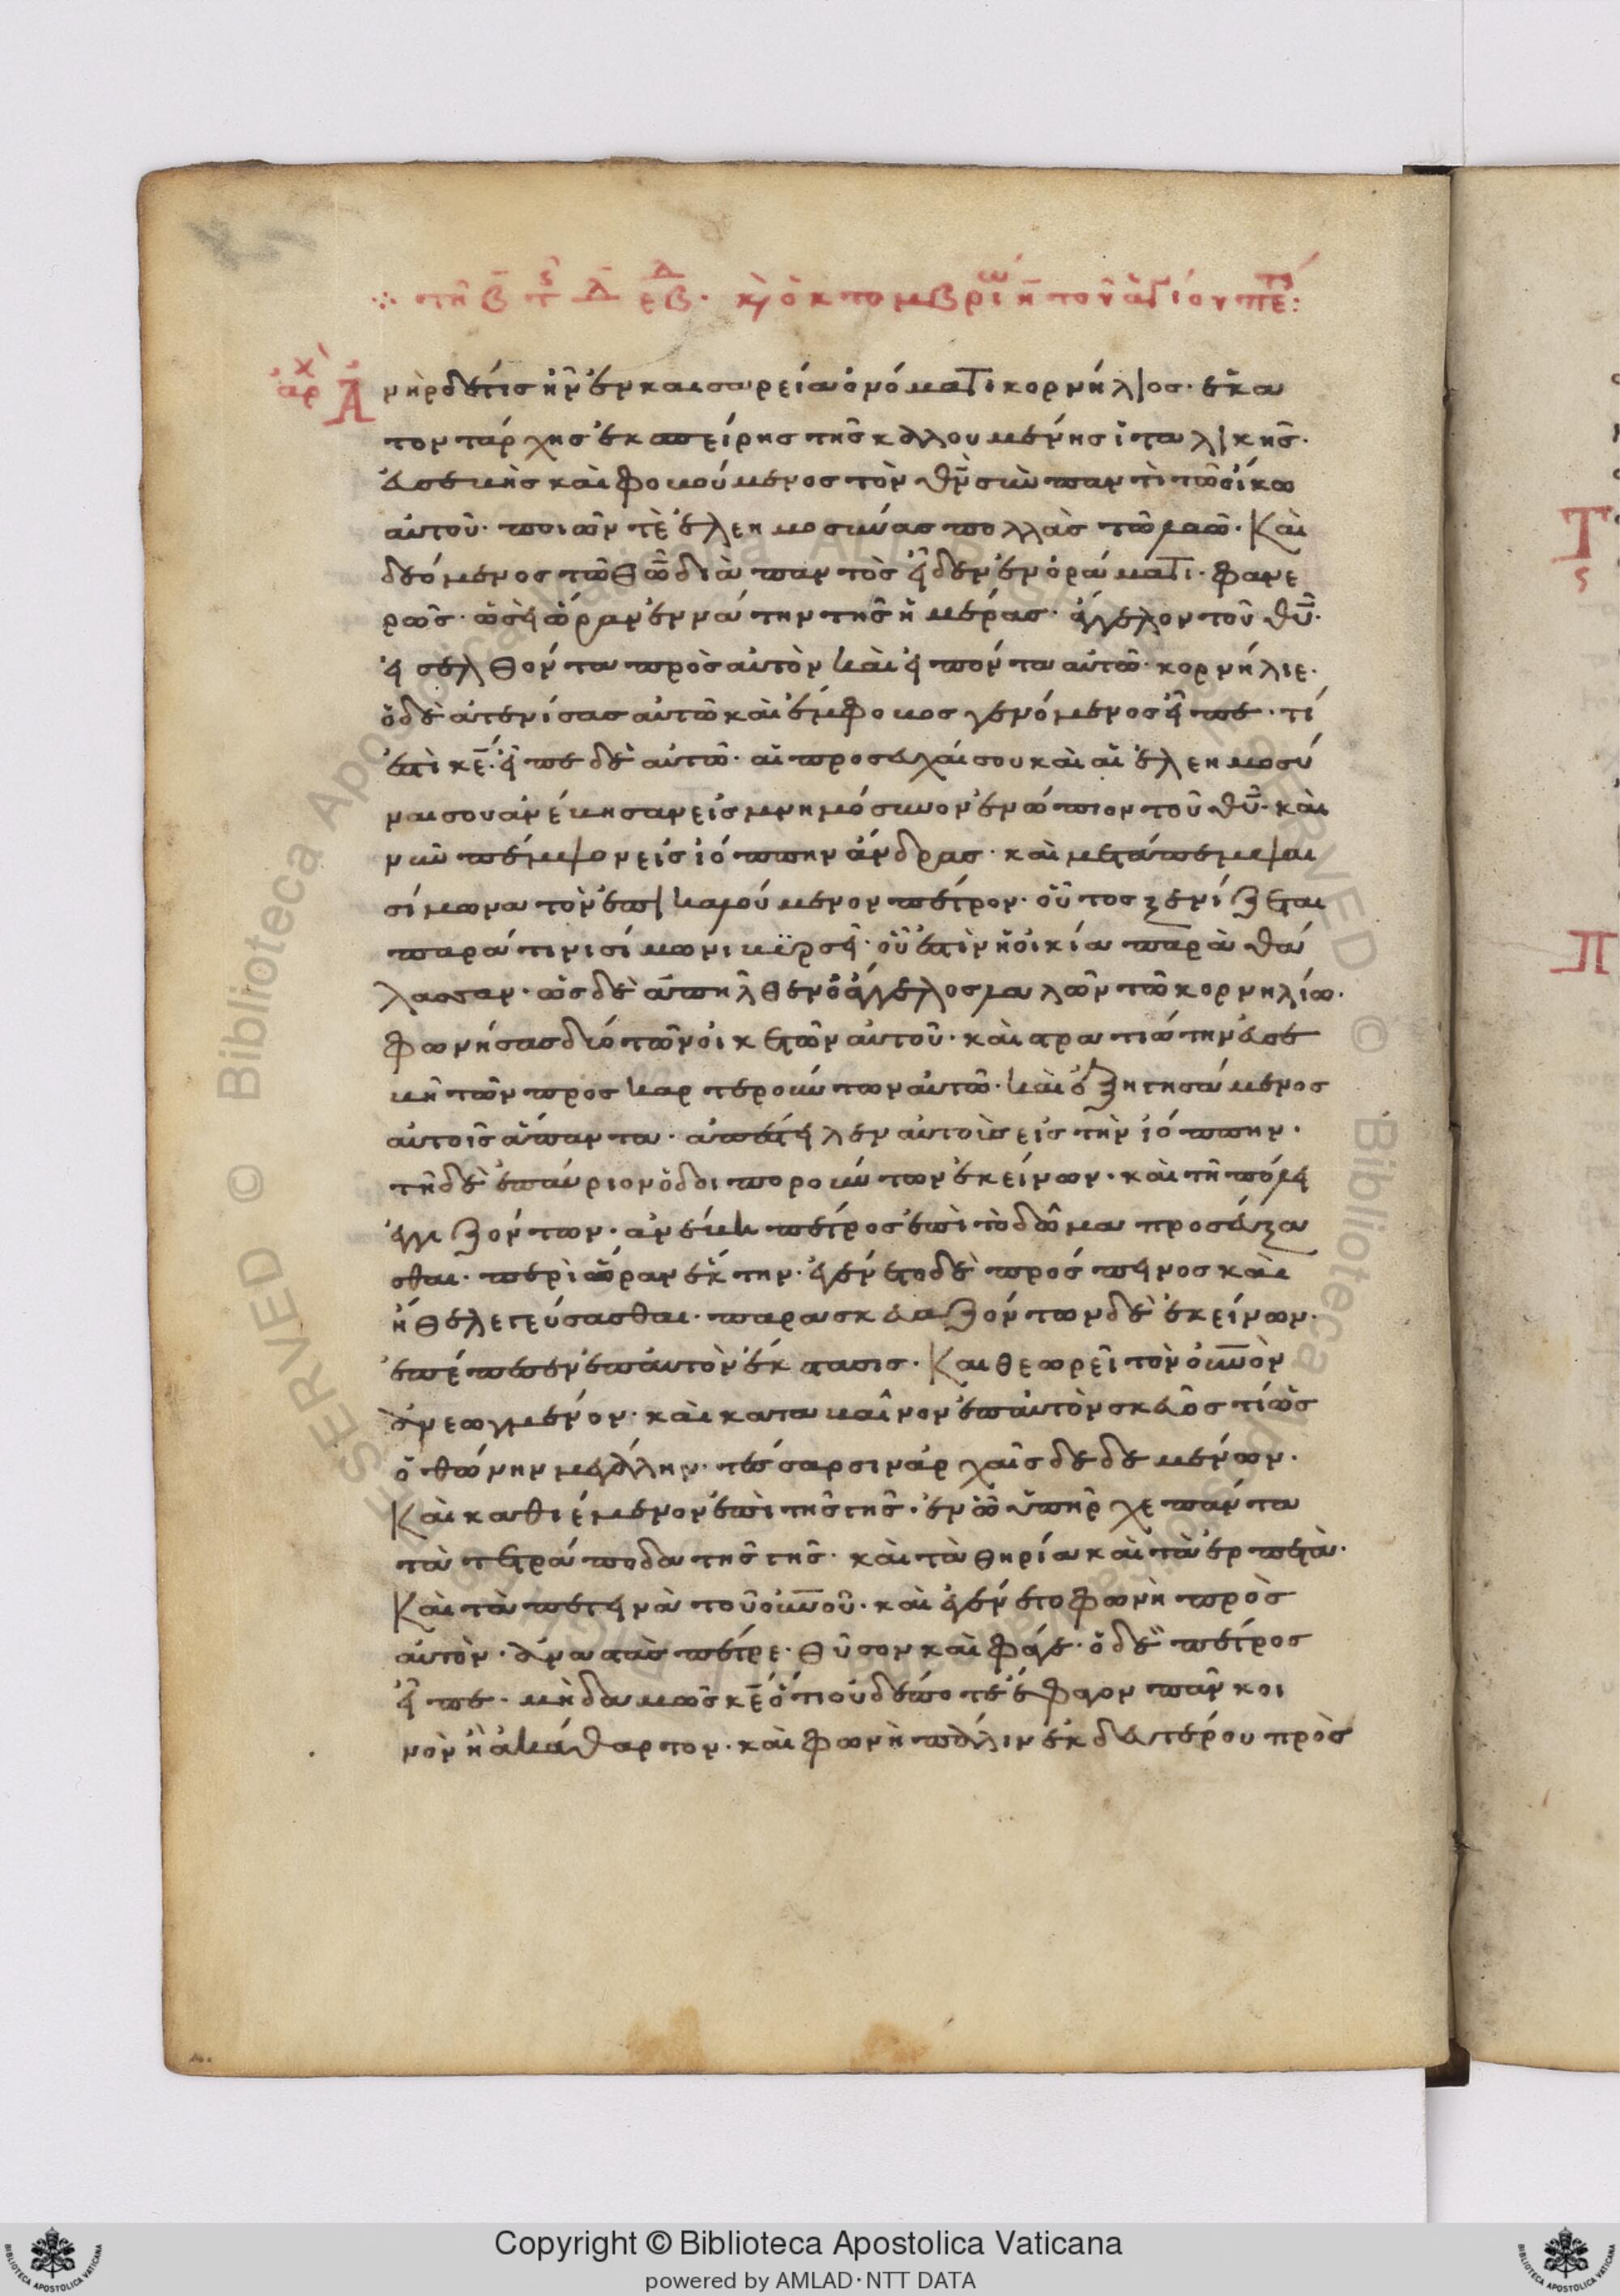 τῆ β̄ τ̂ς Δ̄ ἑβδ· κ(αὶ) ὀκτομβρίω η̄ τοῦ ἁγίου πε:
ἀρχ Ἀ
νὴρ δέ τις ἦν ἐν καισαρεία ὀνόματι κορνήλιος· ἑκα
τοντάρχης ἐκ σπείρης τῆς καλλουμένης ἰταλικῆς·
ἐυσεβὴς καὶ φοβούμενος τὸν θν̄ σὺν παντὶ τῶ οἴκω
αὐτοῦ· ποιῶν τὲ ἐλεημοσύνας πολλὰς τῶ λαῶ· Καὶ
δεόμενος τῶ θῶ διὰ παντὸς εἶδεν ἐν ὁράματι· φανε
ρῶς· ὡσεὶ ὥραν ἐννάτην τῆς ἡμέρας· ἄγγελον τοῦ θῡ·
εἰσελθόντα πρὸς αὐτὸν καὶ εἰπόντα αὐτῶ· κορνήλιε·
ὁ δὲ ἀτενίσας αὐτῶ καὶ ἔμφοβος γενόμενος εἶπε· τί
ἐστὶ κε̄· εἶπε δὲ αὐτῶ· αἱ προσευχαί σου καὶ αἱ ἐλεημοσύ
ναι σου ἀνέβησαν εἰς μνημόσυνον ἐνώπιον τοῦ θῡ· καὶ
νῦν πέμψον εἰς ἰόππην ἄνδρας· καὶ μετάπεμψαι
σίμωνα τὸν ἐπικαλούμενον πέτρον· οὗτος ξενίζεται
παρά τινι σίμωνι βϋρσεῖ· οὗ ἐστὶν ἡ οἰκία παρὰ θά
λασσαν· ὡς δὲ ἀπῆλθεν ὁ ἄγγελος λαλῶν τῶ κορνηλίω·
φωνήσας δύο τῶν οἰκετῶν αὐτοῦ· καὶ στρατιώτην ἐυσε
βῆ τῶν προσκαρτερούντων αὐτῶ· καὶ ἐξηγησάμενος
αὐτοῖς ἅπαντα· ἀπέστειλεν αὐτοὺς εἰς τὴν ἰόππην·
τῆ δὲ ἐπαύριον ὁδοιπορούντων ἐκείνων· καὶ τῆ πόλει
ἐγγιζόντων· ἀνέβη πέτρος ἐπὶ τὸ δῶμα προσεύξα
σθαι· περὶ ὥραν ἕκτην· ἐγένετο δὲ πρόσπεινος καὶ
ἤθελε γεύσασθαι· παρασκευαζόντων δὲ ἐκείνων·
ἐπέπεσεν ἐπ αὐτὸν ἔκστασις· Και θεωρεῖ τὸν οὐ̅νὸν
ἀνεωγμένον· καὶ καταβαῖνον ἐπ αὐτὸν σκεῦός τι ὡς
ὀθώνην μεγάλην· τέσσαρσιν ἀρχαῖς δεδεμένων·
Καὶ καθιέμενον ἐπὶ τῆς γῆς· ἐν ὧ ὑπῆρχε πάντα
τὰ τετράποδα τῆς γῆς· καὶ τὰ θηρία καὶ τὰ ἑρπετὰ·
Καὶ τὰ πετεινὰ τοῦ οὐ̅νοῦ· καὶ ἐγένετο φωνὴ πρὸς
αὐτὸν· ἀναστὰς πέτρε· θῦσον καὶ φάγε· ὁ δὲ πέτρος
εἶπε· μὴδαμῶς κε̄ ὅτι οὐδέποτε ἔφαγον πᾶν κοι
νὸν ἢ ἀκάθαρτον· καὶ φωνὴ πάλιν ἐκ δευτέρου πρὸς
Copyright © Biblioteca Apostolica Vaticana
powered by AMLAD·NTT DATA